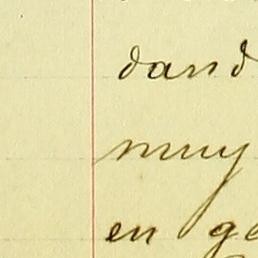 dand
muy
en ge